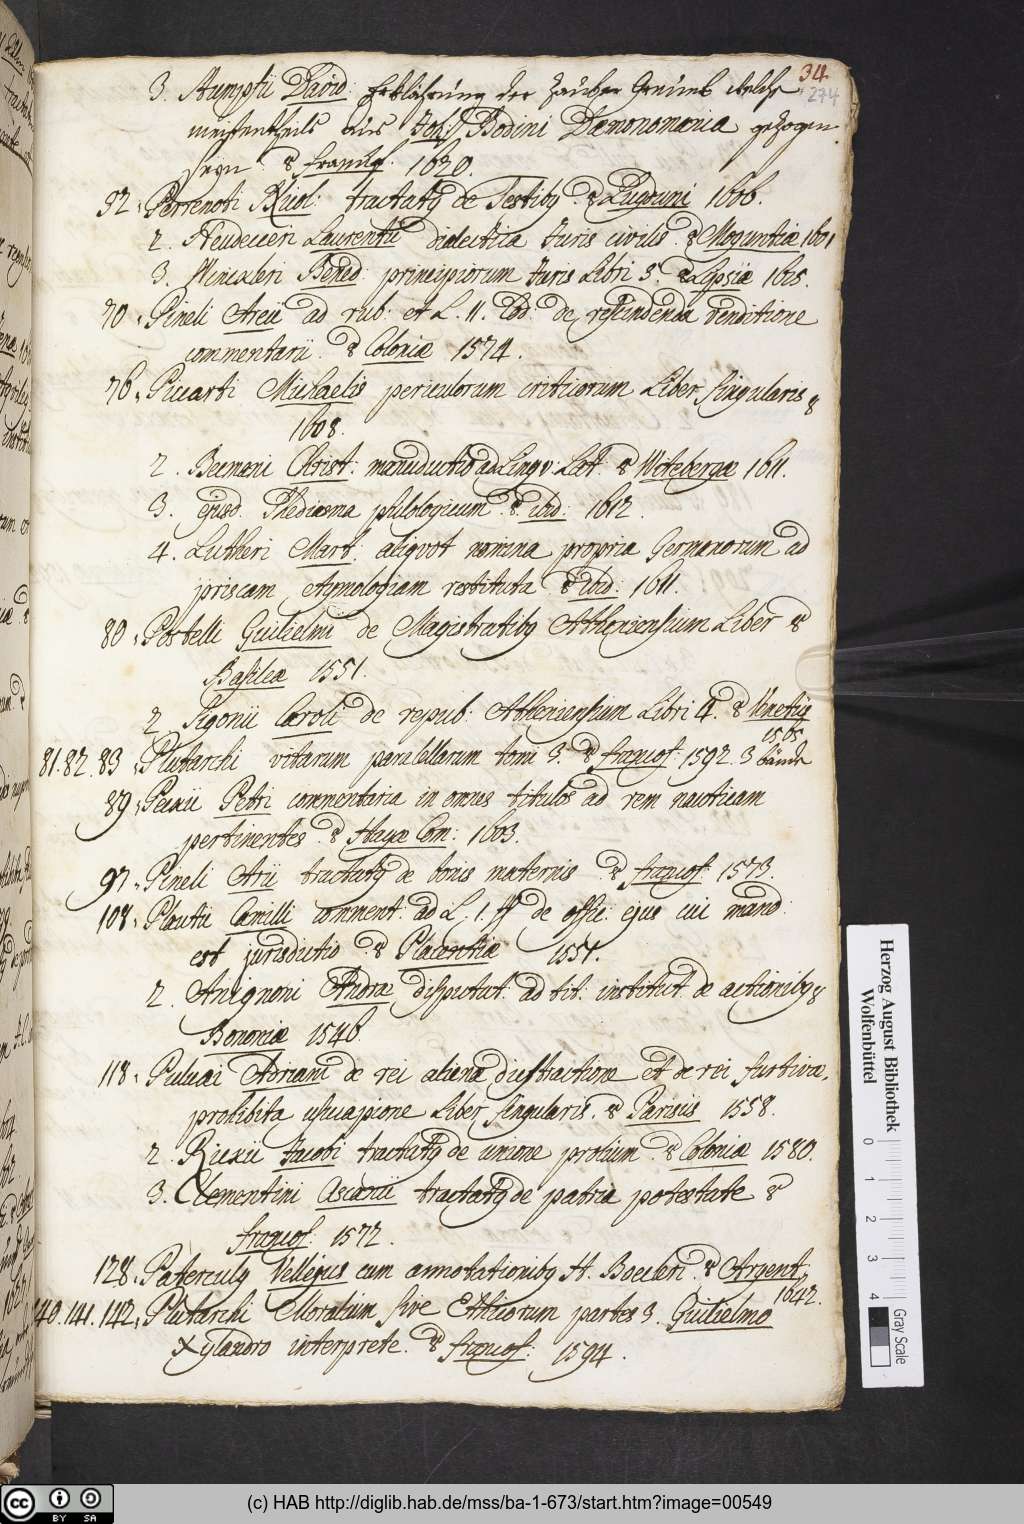 34
274
3. Stumpfii David: Erklährung der Zauber Greuel welche
meistentheils aus Joh: Bodini Dæmonomania gezogen
seyn. 8 francof. 1620.
32. Perrenoti tractatq de Testibq. 8 Lugduni 1606.
2. Laurentii dialectica Juris civilis. 8 Moguntiæ 1601
3. Wincleri Bened: principiorum Juris Libri 5. 8 Lipsiæ 1615.
70. Pineli Areii ad rub: et L. 11. Cod: de rescindenda venditione
commentarii. 8 Coloniæ 1574.
76. Piccarti Michaelis periculorum criticorum Liber singularis 8
1608.
2. Becmani Christ: manuductio ad Lingv: Lat: 8 Witebergæ 1611.
3. ejusd. Schediasma philologicum. 8. ibid: 1612.
4. Lutheri Mart: aliqvot nomina propria Germanorum ad
priscam etymologiam restituta 8 ibid: 1611.
80. Postelli Guilielmi de Magistratibq Atheniensium Liber 8
Basileæ 1551.
2. Sigonii Caroli de repub: Atheniensium Libri 4. 8 Venetiis
1565.
81. 82. 83. Plutarchi vitarum parallelarum tomi 3. 8 francof. 1592. 3 bände
89. Peckii Petri commentaria in omnes titulos ad rem nauticam
pertinentes. 8 Hagæ Com: 1603.
97. Pineli Arii tractatq de bonis maternis. 8 francof. 1573.
108. Plautii Camilli comment: ad L. 1. ff de offic: ejus cui mand:
est jurisdictio. 8 Placentiæ 1551.
2. Andreæ disputat: ad tit: institut: de actionibq 8
Bononiæ 1546.
118. Pulvæi Adriani de rei alienæ distractione et de rei furtivæ
prohibita usucapione Liber singularis. 8 Parisiis 1558.
2. Rickii Jacobi tractatq de unione prolium. 8 Coloniæ 1580.
3. Clementini Ascanii tractatq de patria potestate 8
francof. 1572.
128. Paterculq Vellejus cum annotationibq H. Boecleri. 8 Argent:
1642.
140. 141. 142. Plutarchi Moralium sive Ethicorum partes 3. Guilielmo
Xylandro interprete. 8 francof: 1594.
Herzog August Bibliothek
Wolfenbüttel
0 1 2 3 4
Gray Scale
cc BY SA
(c) HAB http://diglib.hab.de/mss/ba-1-673/start.htm?image=00549